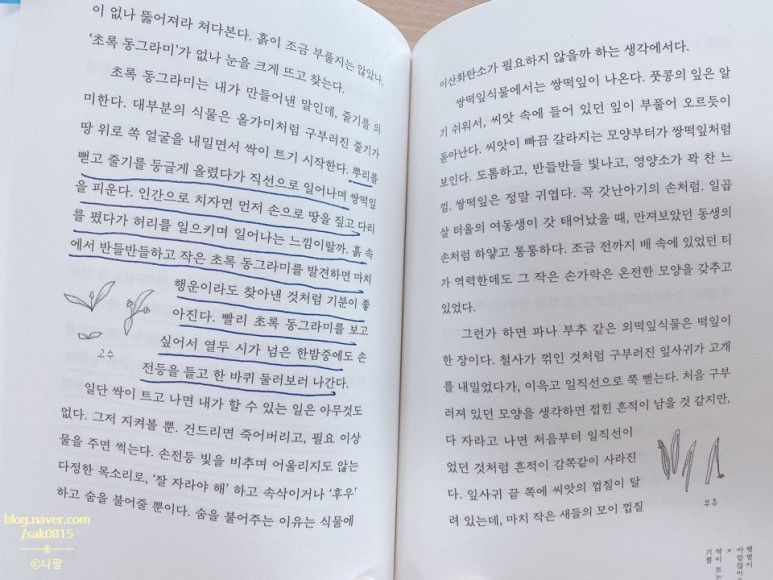 이 없나 뚫어져라 쳐다본다. 흙이 조금 부풀지는 않았나,
'초록 동그라미'가 없나 눈을 크게 뜨고 찾는다.
초록 동그라미는 내가 만들어낸 말인데, 줄기를 의
미한다. 대부분의 식물은 올가미처럼 구부러진 줄기가
땅 위로 쏙 얼굴을 내밀면서 싹이 트기 시작한다. 뿌리를
뻗고 줄기를 둥글게 올렸다가 직선으로 일어나며 쌍떡잎
을 피운다. 인간으로 치자면 먼저 손으로 땅을 짚고 다리
를 폈다가 허리를 일으키며 일어나는 느낌이랄까. 흙 속
에서 반들반들하고 작은 초록 동그라미를 발견하면 마치
행운이라도 찾아낸 것처럼 기분이 좋
아진다. 빨리 초록 동그라미를 보고
싶어서 열두 시가 넘은 한밤중에도 손
전등을 들고 한 바퀴 둘러보러 나간다.
고수
일단 싹이 트고 나면 내가 할 수 있는 일은 아무것도
없다. 그저 지켜볼 뿐. 건드리면 죽어버리고, 필요 이상
물을 주면 썩는다. 손전등 빛을 비추며 어울리지도 않는
다정한 목소리로, '잘 자라야 해' 하고 속삭이거나 '후우'
하고 숨을 불어줄 뿐이다. 숨을 불어주는 이유는 식물에
이산화탄소가 필요하지 않을까 하는 생각에서다.
쌍떡잎식물에서는 쌍떡잎이 나온다. 풋콩의 잎은 알
기 쉬워서, 씨앗 속에 들어 있던 잎이 부풀어 오르듯이
돋아난다. 씨앗이 빠끔 갈라지는 모양부터가 쌍떡잎처럼
보인다. 도톰하고, 반들반들 빛나고, 영양소가 꽉 찬 느
낌. 쌍떡잎은 정말 귀엽다. 꼭 갓난아기의 손처럼. 일곱
살 터울의 여동생이 갓 태어났을 때, 만져보았던 동생의
손처럼 하얗고 통통하다. 조금 전까지 배 속에 있었던 티
가 역력한데도 그 작은 손가락은 온전한 모양을 갖추고
있었다.
그런가 하면 파나 부추 같은 외떡잎식물은 떡잎이
한 장이다. 철사가 꺾인 것처럼 구부러진 잎사귀가 고개
를 내밀었다가, 이윽고 일직선으로 쭉 뻗는다. 처음 구부
러져 있던 모양을 생각하면 접힌 흔적이 남을 것 같지만,
다 자라고 나면 처음부터 일직선이
었던 것처럼 흔적이 감쪽같이 사라진
다. 잎사귀 끝 쪽에 씨앗의 껍질이 달
려 있는데, 마치 작은 새들의 모이 껍질
부추
싹이 트는
기쁨
blog.naver.com
/sak0815
©나팔